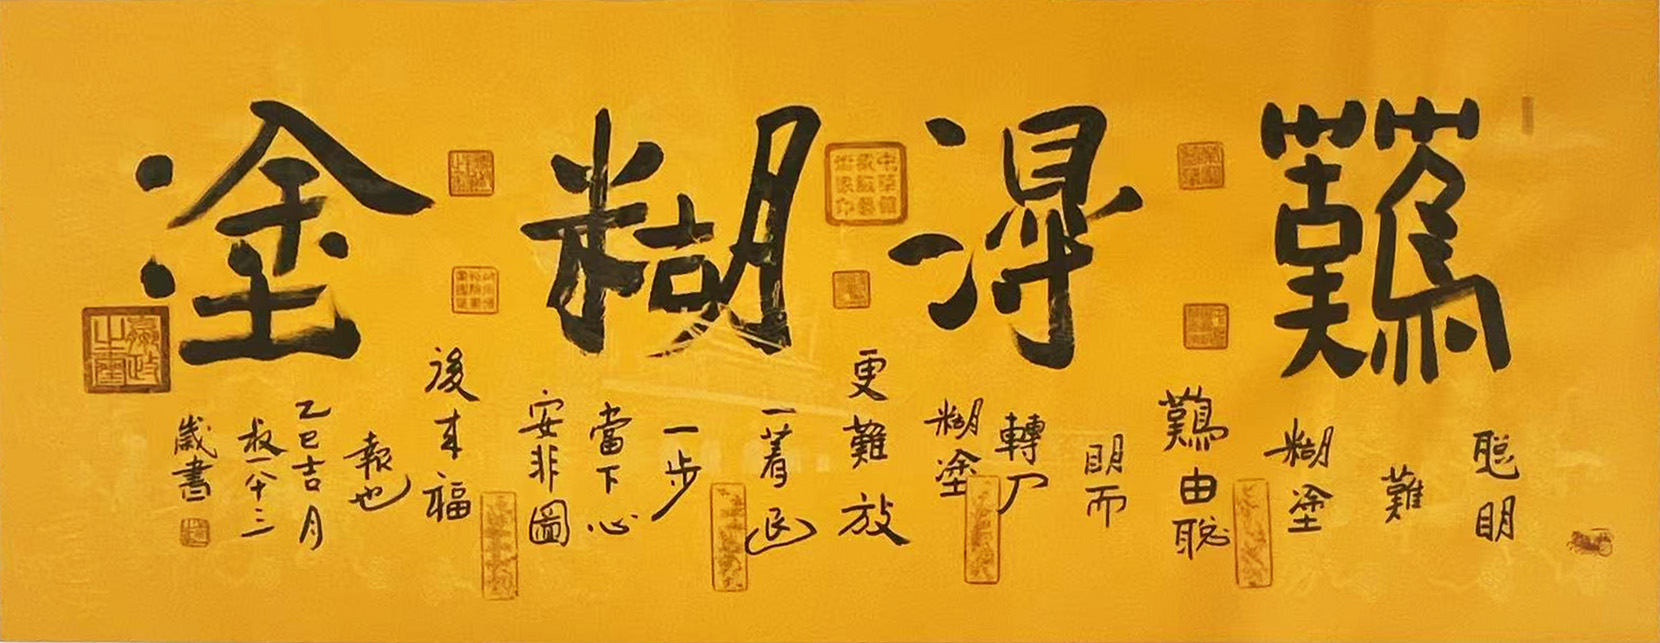 難淂糊塗
聪明
難
糊塗
難由聪
明而
轉入
糊塗
更難放
一著
一步
當下心
安非圖
後来福
報也
乙巳吉月
八十三
歲書